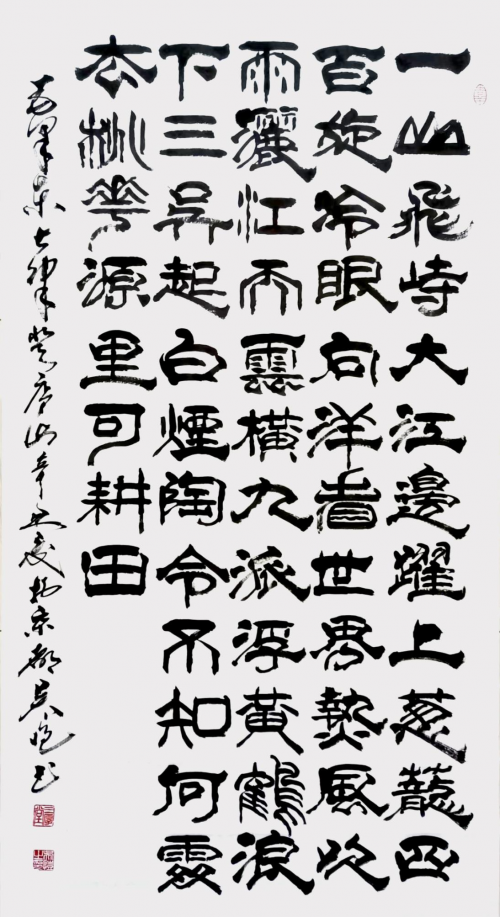 一山飛峙大江邊躍上葱蘢四
百旋冷眼向洋看世界熱風吹
雨灑江天雲橫九派浮黄鶴浪
下三吳起白煙陶令不知何處
去桃花源里可耕田
毛澤東七律登庐山辛丑夏於京都吴书